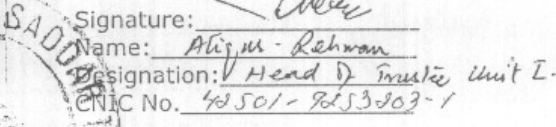 Signature:
SADDAR
Name: Atiq ur - Rehman
Designation: Head of Trustee Unit I.
CNIC No. 42501-9253203-1